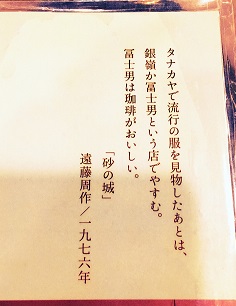 タナカヤで流行の服を見物したあとは、
銀嶺か冨士男という店でやすむ。
冨士男は珈琲がおいしい。
「砂の城」
遠藤周作/一九七六年